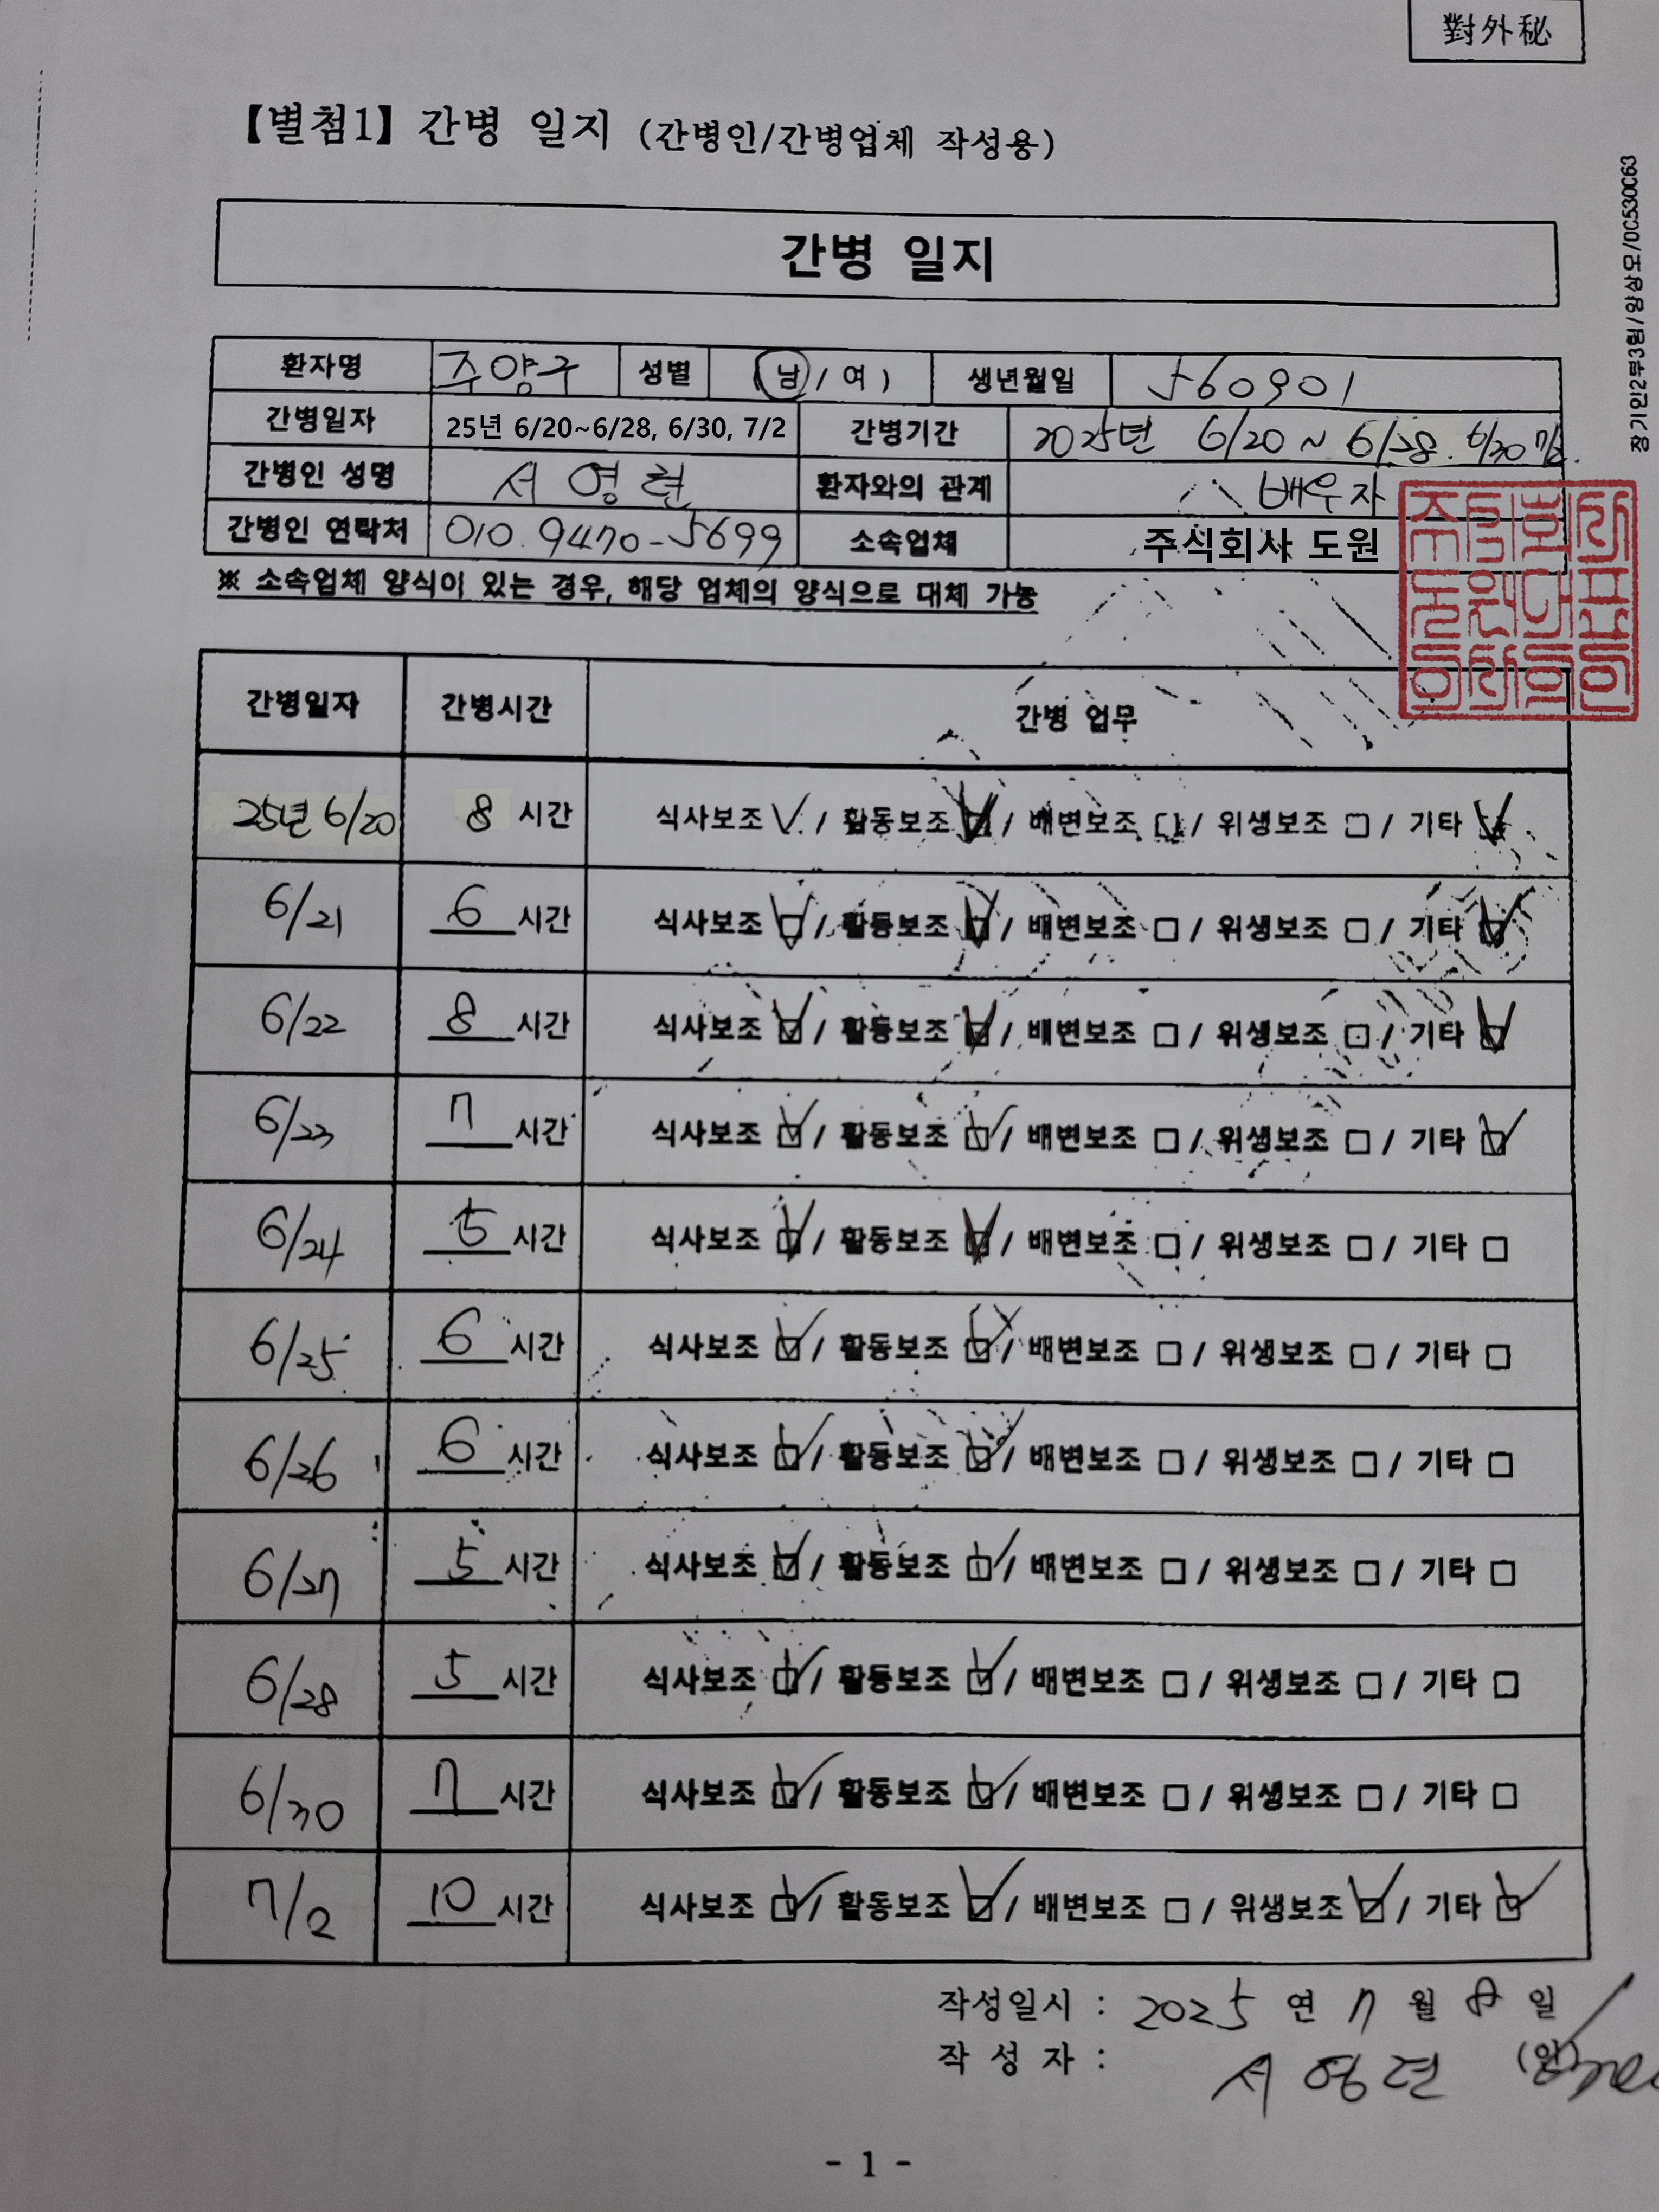 對外秘
【별첨1】 간병 일지 (간병인/간병업체 작성용)
장기인2부3팀/양상모/0C530C63
간병 일지
환자명 주양구 성별 (남 / 여) 생년월일 560901
간병일자 25년 6/20~6/28, 6/30, 7/2 간병기간 2025년 6/20 ~ 6/28. 6/30 7/2.
간병인 성명 서영현 환자와의 관계 배우자
간병인 연락처 010.9470-5699 소속업체 주식회사 도원
※ 소속업체 양식이 있는 경우, 해당 업체의 양식으로 대체 가능
간병일자 간병시간 간병 업무
25년 6/20 8 시간 식사보조 ✓ / 활동보조 ☑ / 배변보조 □ / 위생보조 □ / 기타 ☑
6/21 6 시간 식사보조 ☑ / 활동보조 ☑ / 배변보조 □ / 위생보조 □ / 기타 ☑
6/22 8 시간 식사보조 ☑ / 활동보조 ☑ / 배변보조 □ / 위생보조 □ / 기타 ☑
6/23 7 시간 식사보조 ☑ / 활동보조 ☑ / 배변보조 □ / 위생보조 □ / 기타 ☑
6/24 5 시간 식사보조 ☑ / 활동보조 ☑ / 배변보조 □ / 위생보조 □ / 기타 □
6/25 6 시간 식사보조 ☑ / 활동보조 ☑ / 배변보조 □ / 위생보조 □ / 기타 □
6/26 6 시간 식사보조 ☑ / 활동보조 ☑ / 배변보조 □ / 위생보조 □ / 기타 □
6/27 5 시간 식사보조 ☑ / 활동보조 ☑ / 배변보조 □ / 위생보조 □ / 기타 □
6/28 5 시간 식사보조 ☑ / 활동보조 ☑ / 배변보조 □ / 위생보조 □ / 기타 □
6/30 7 시간 식사보조 ☑ / 활동보조 ☑ / 배변보조 □ / 위생보조 □ / 기타 □
7/2 10 시간 식사보조 ☑ / 활동보조 ☑ / 배변보조 □ / 위생보조 ☑ / 기타 ☑
작성일시 : 2025 연 7 월 8 일
작 성 자 : 서영현 (인)
- 1 -